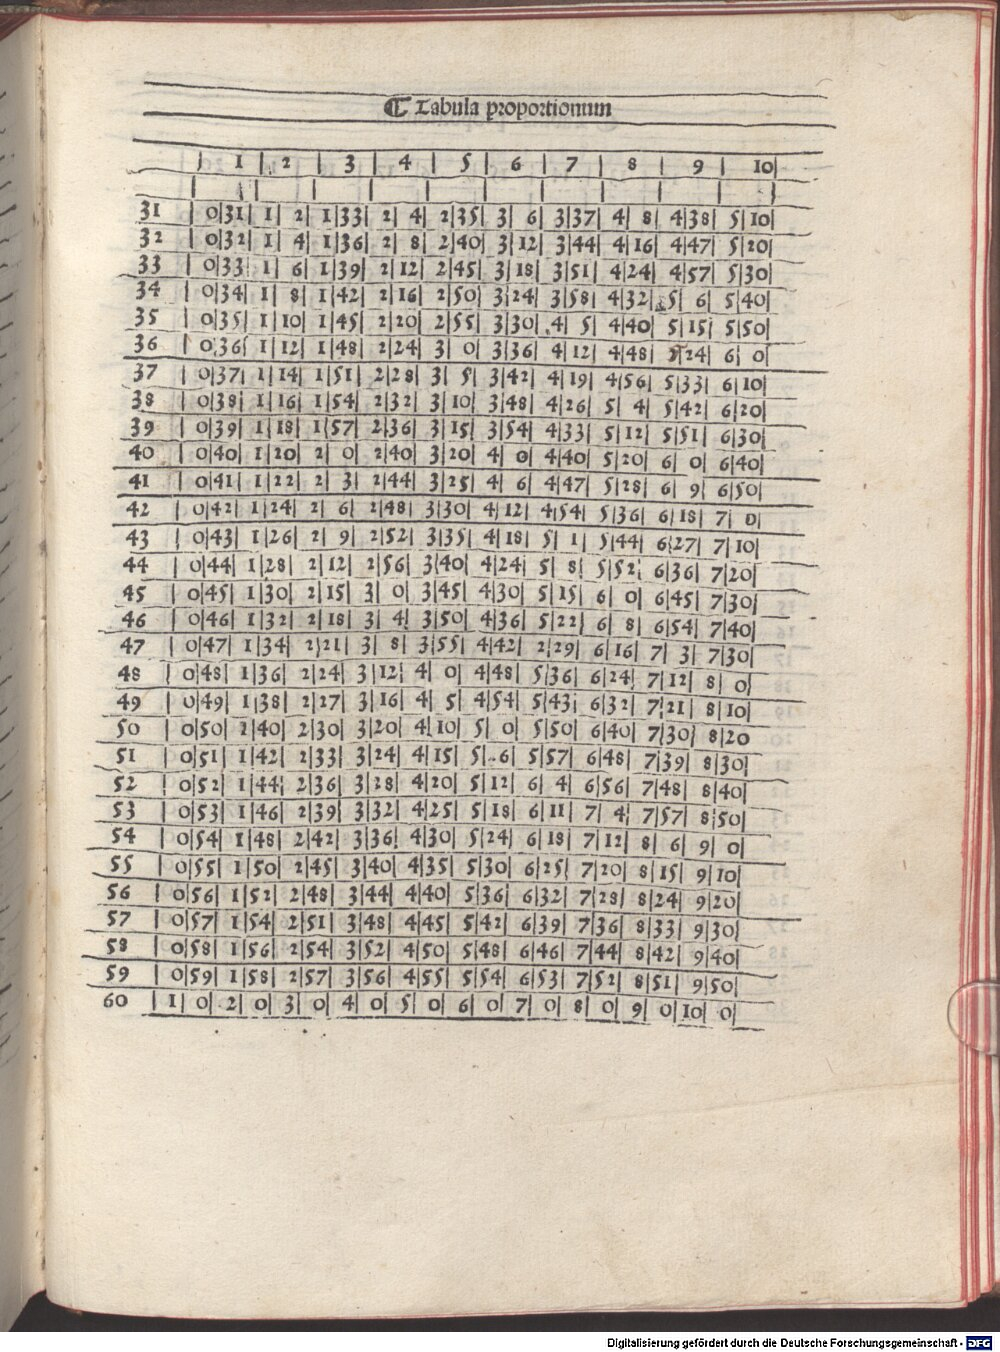 ❡ Tabula proportionum
| 1 | 2 | 3 | 4 | 5 | 6 | 7 | 8 | 9 | 10|
31 | 0|31| 1| 2| 1|33| 2| 4| 2|35| 3| 6| 3|37| 4| 8| 4|38| 5|10|
32 | 0|32| 1| 4| 1|36| 2| 8| 2|40| 3|12| 3|44| 4|16| 4|47| 5|20|
33 | 0|33| 1| 6| 1|39| 2|12| 2|45| 3|18| 3|51| 4|24| 4|57| 5|30|
34 | 0|34| 1| 8| 1|42| 2|16| 2|50| 3|24| 3|58| 4|32| 5| 6| 5|40|
35 | 0|35| 1|10| 1|45| 2|20| 2|55| 3|30| 4| 5| 4|40| 5|15| 5|50|
36 | 0|36| 1|12| 1|48| 2|24| 3| 0| 3|36| 4|12| 4|48| 5|24| 6| 0|
37 | 0|37| 1|14| 1|51| 2|28| 3| 5| 3|42| 4|19| 4|56| 5|33| 6|10|
38 | 0|38| 1|16| 1|54| 2|32| 3|10| 3|48| 4|26| 5| 4| 5|42| 6|20|
39 | 0|39| 1|18| 1|57| 2|36| 3|15| 3|54| 4|33| 5|12| 5|51| 6|30|
40 | 0|40| 1|20| 2| 0| 2|40| 3|20| 4| 0| 4|40| 5|20| 6| 0| 6|40|
41 | 0|41| 1|22| 2| 3| 2|44| 3|25| 4| 6| 4|47| 5|28| 6| 9| 6|50|
42 | 0|42| 1|24| 2| 6| 2|48| 3|30| 4|12| 4|54| 5|36| 6|18| 7| 0|
43 | 0|43| 1|26| 2| 9| 2|52| 3|35| 4|18| 5| 1| 5|44| 6|27| 7|10|
44 | 0|44| 1|28| 2|12| 2|56| 3|40| 4|24| 5| 8| 5|52| 6|36| 7|20|
45 | 0|45| 1|30| 2|15| 3| 0| 3|45| 4|30| 5|15| 6| 0| 6|45| 7|30|
46 | 0|46| 1|32| 2|18| 3| 4| 3|50| 4|36| 5|22| 6| 8| 6|54| 7|40|
47 | 0|47| 1|34| 2|21| 3| 8| 3|55| 4|42| 2|29| 6|16| 7| 3| 7|30|
48 | 0|48| 1|36| 2|24| 3|12| 4| 0| 4|48| 5|36| 6|24| 7|12| 8| 0|
49 | 0|49| 1|38| 2|27| 3|16| 4| 5| 4|54| 5|43| 6|32| 7|21| 8|10|
50 | 0|50| 2|40| 2|30| 3|20| 4|10| 5| 0| 5|50| 6|40| 7|30| 8|20
51 | 0|51| 1|42| 2|33| 3|24| 4|15| 5| 6| 5|57| 6|48| 7|39| 8|30|
52 | 0|52| 1|44| 2|36| 3|28| 4|20| 5|12| 6| 4| 6|56| 7|48| 8|40|
53 | 0|53| 1|46| 2|39| 3|32| 4|25| 5|18| 6|11| 7| 4| 7|57| 8|50|
54 | 0|54| 1|48| 2|42| 3|36| 4|30| 5|24| 6|18| 7|12| 8| 6| 9| 0|
55 | 0|55| 1|50| 2|45| 3|40| 4|35| 5|30| 6|25| 7|20| 8|15| 9|10|
56 | 0|56| 1|52| 2|48| 3|44| 4|40| 5|36| 6|32| 7|28| 8|24| 9|20|
57 | 0|57| 1|54| 2|51| 3|48| 4|45| 5|42| 6|39| 7|36| 8|33| 9|30|
58 | 0|58| 1|56| 2|54| 3|52| 4|50| 5|48| 6|46| 7|44| 8|42| 9|40|
59 | 0|59| 1|58| 2|57| 3|56| 4|55| 5|54| 6|53| 7|52| 8|51| 9|50|
60 | 1| 0| 2| 0| 3| 0| 4| 0| 5| 0| 6| 0| 7| 0| 8| 0| 9| 0| 10| 0|
Digitalisierung gefördert durch die Deutsche Forschungsgemeinschaft - DFG